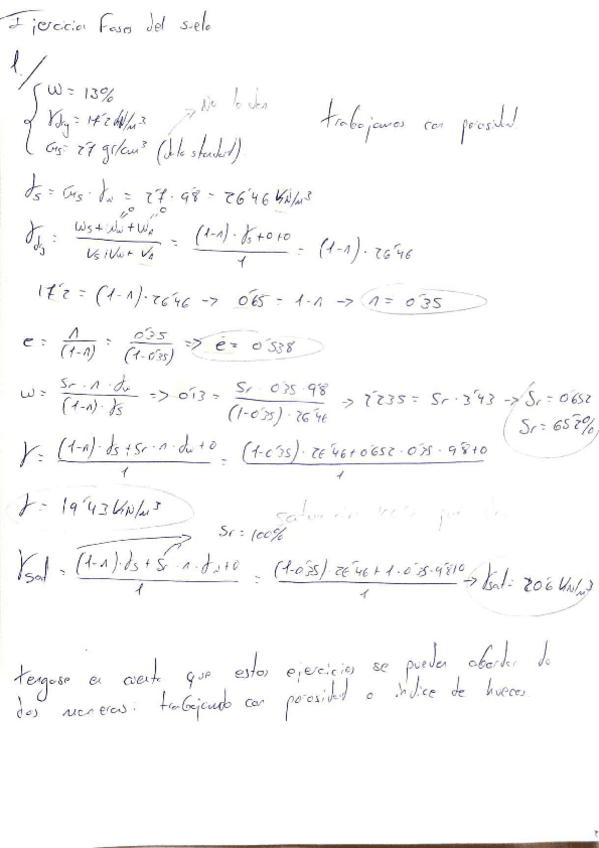 Ejercicios Fases del suelo
1./
w = 13%
γdry = 17'2 kN/m³
Gs = 2'7 gr/cm³ (dato standard)
No lo dan
trabajamos con porosidad
γs = Gs · γw = 2'7 · 9'8 = 26'46 kN/m³
γdry = (Ws + Ww + Wa) / (Vs + Vw + Va) = ((1-n) · γs + 0 + 0) / 1 = (1-n) · 26'46
17'2 = (1-n) · 26'46 → 0'65 = 1-n → n = 0'35
e = n / (1-n) = 0'35 / (1-0'35) ⇒ e = 0'538
w = (Sr · n · γw) / ((1-n) · γs) ⇒ 0'13 = (Sr · 0'35 · 9'8) / ((1-0'35) · 26'46) → 2'235 = Sr · 3'43 → Sr = 0'652
Sr = 65'2%
γ = ((1-n) · γs + Sr · n · γw + 0) / 1 = ((1-0'35) · 26'46 + 0'652 · 0'35 · 9'8 + 0) / 1
γ = 19'43 kN/m³
Sr = 100%
γsat = ((1-n) · γs + Sr · n · γw + 0) / 1 = ((1-0'35) · 26'46 + 1 · 0'35 · 9'8 + 0) / 1 → γsat = 20'6 kN/m³
tengase en cuenta que estos ejercicios se pueden abordar de
dos maneras: trabajando con porosidad o indice de huecos.